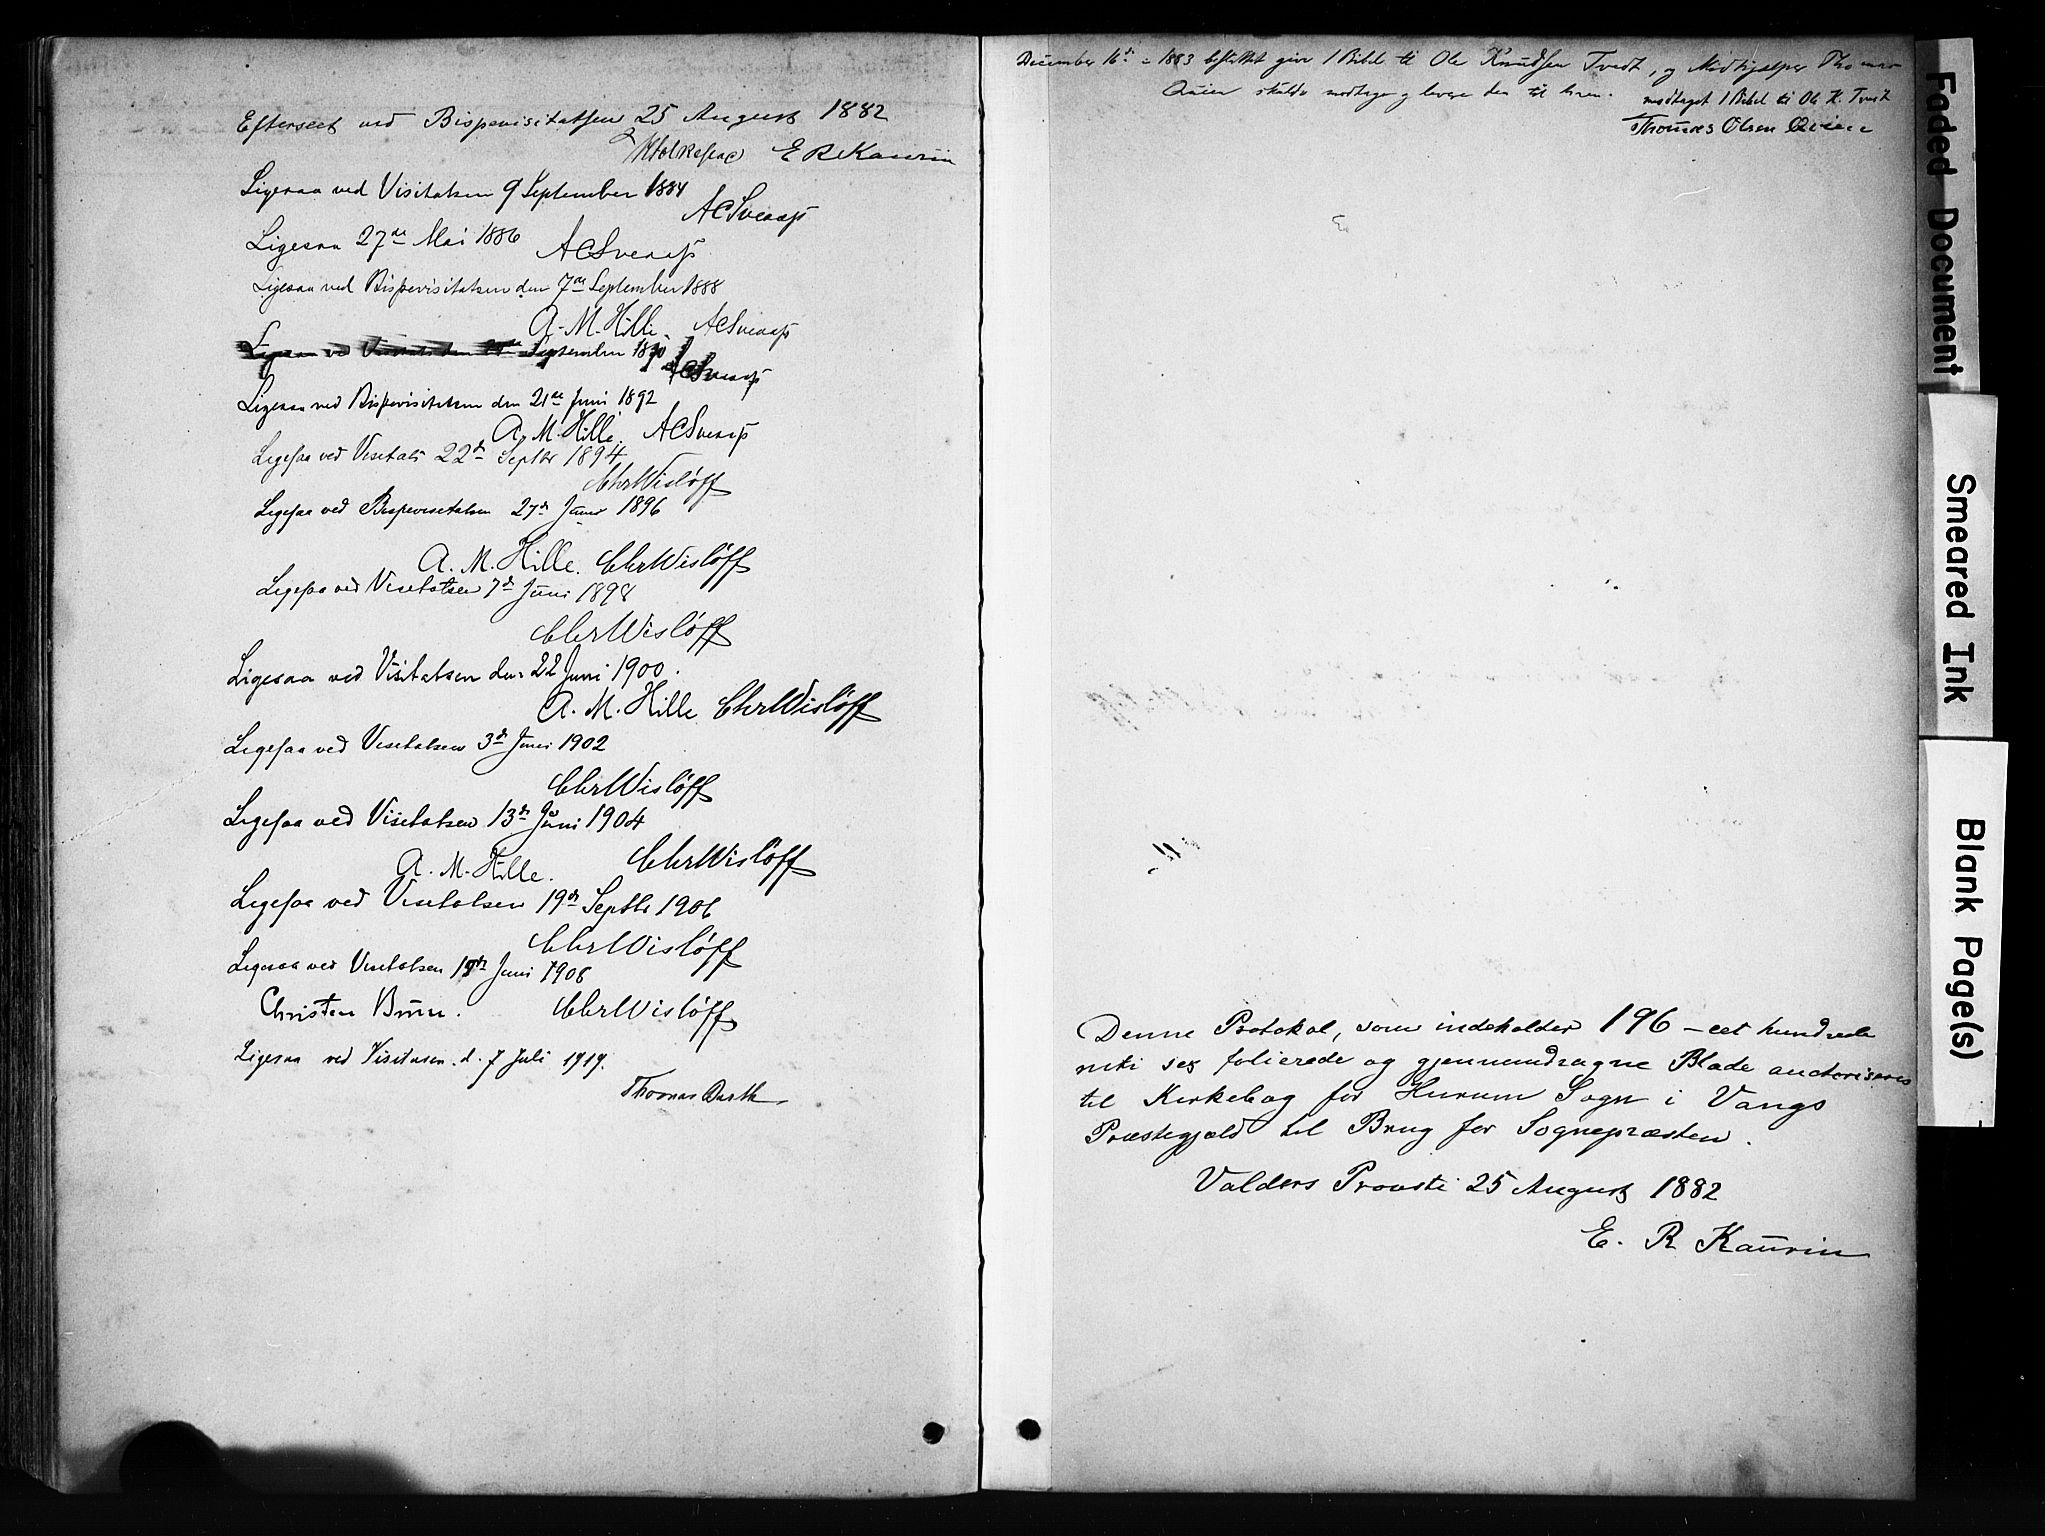 Efterseet ved Bispevisitatsen 25 August 1882
E R Kaurin
Ligesaa ved Visitatsen 9 September 1884
A C Sveaas
Ligesaa 27de Mai 1886 A C Sveaas
Ligesaa ved Bispevisitatsen den 7de September 1888
A. M. Hille. A C Sveaas
Ligesaa ved September 1890
A C Sveaas
Ligesaa ved Bispevisitatsen den 21de Juni 1892
A. M. Hille. A C Sveaas
Ligesaa ved Visitats 22de Septbr 1894
Chr Wisløff
Ligesaa ved Bispevisitatsen 27de 1896
A. M. Hille. Chr Wisløff
Ligesaa ved Visitatsen 7de Juni 1898
Chr Wisløff
Ligesaa ved Visitatsen den 22 Juni 1900.
A. M. Hille Chr Wisløff
Ligesaa ved Visitatsen 3de Juni 1902
Chr Wisløff
Ligesaa ved Visitatsen 13de Juni 1904
A. M. Hille. Chr Wisløff
Ligesaa ved Visitatsen 19de Septbr 1906
Chr Wisløff
Ligesaa ved Visitatsen Juni 1908
Christen Brun. Chr Wisløff
Ligesaa ved Visitasen d. 7 Juli 1919.
Thomas Barth.
December 16de 1883 besluttet give 1 Bibel til Ole Knudsen Tvedt, og Medhjælper Thomas
Qvien skulde modtage og levere den til ham. modtaget 1 Bibel til Ole K. Tvedt
Thomas Olsen Qvien
Denne Protokol, som indeholder 196 – eet hundrede
niti sex folierede og gjennemdragne Blade auctoriseres
til Kirkebog for Hurum Sogn i Vangs
Præstegjæld til Brug for Sognepræsten.
Valders Provsti 25 August 1882
E. R Kaurin
Faded Document
Smeared Ink
Blank Page(s)